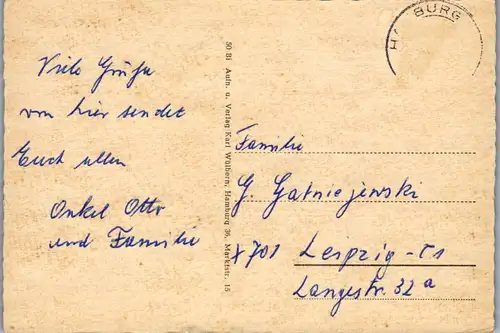 Viele Grüße
von hier sendet
Euch allen
Onkel Otto
und Familie
50 Bi Aufn. u. Verlag Karl Wülbern, Hamburg 36, Marktstr. 15
BURG
Familie
G. Gatniejewski
X 701 Leipzig - C1
Langestr. 32 a